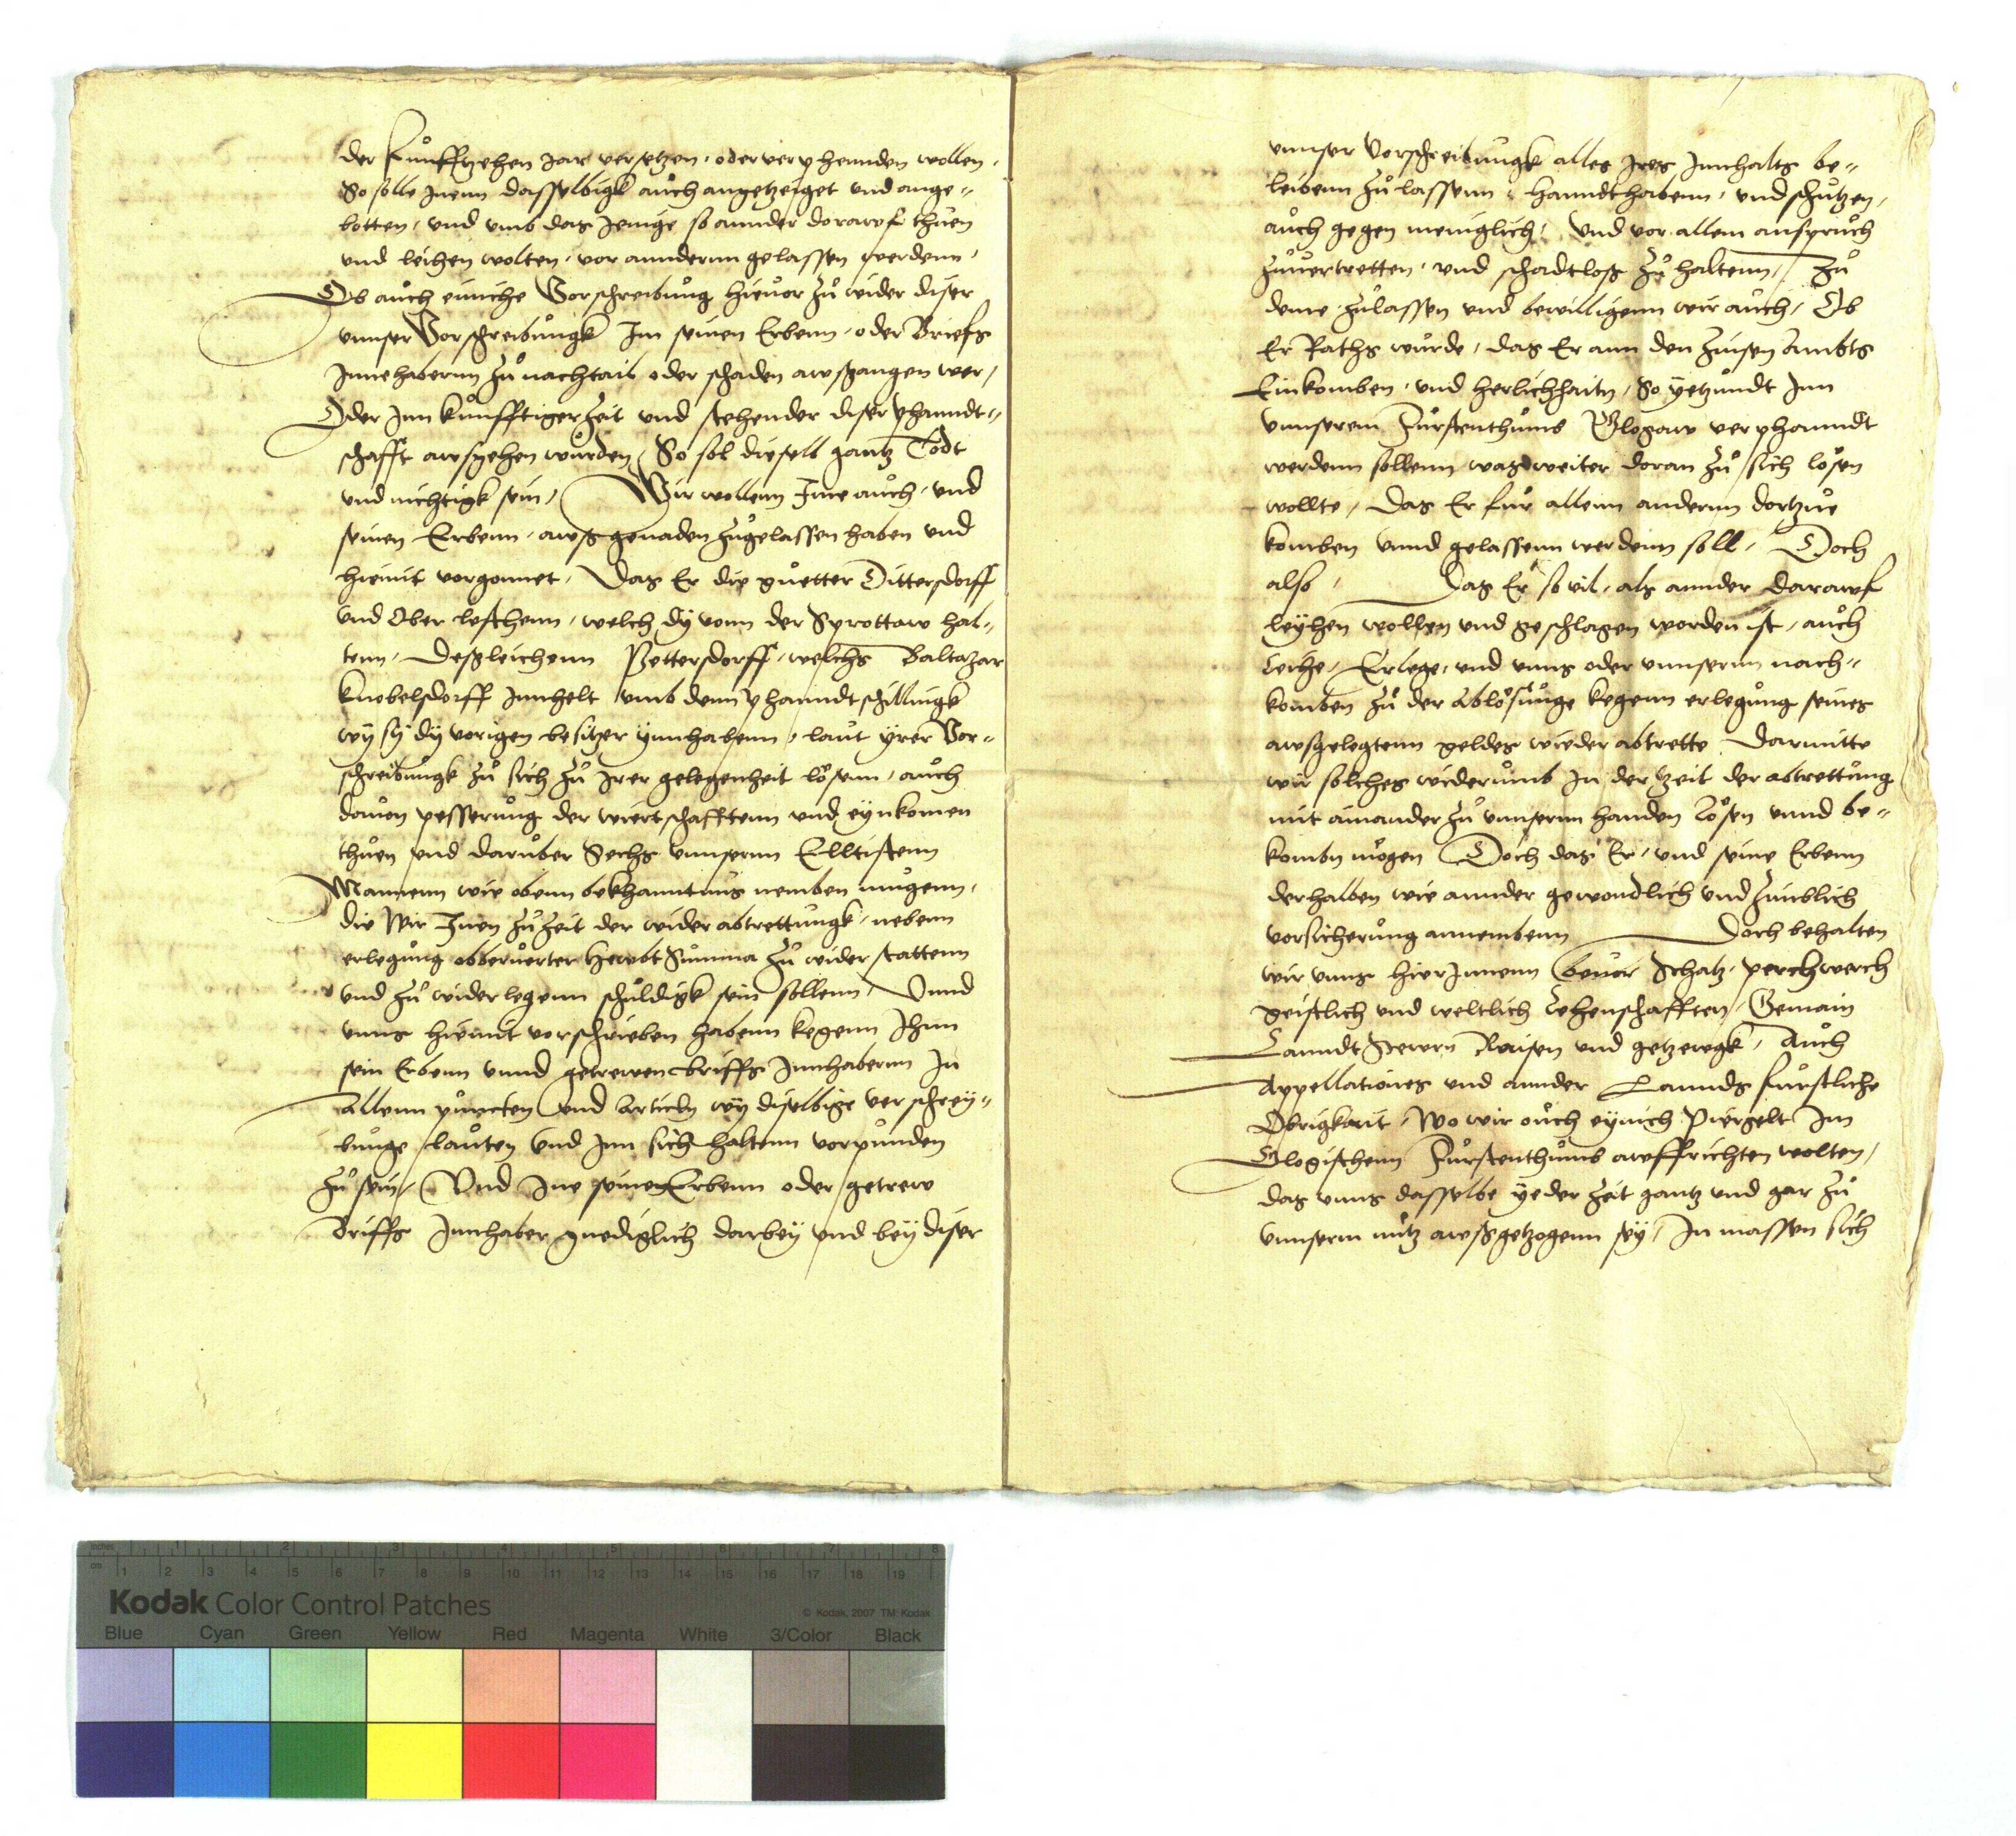 der funfftzehen Jar versetzen, oder verphennden wollen,
So solle Jnenn dasselbigk auch angetzeiget vnd ange-
botten, vnd vmb das Jenige so annder dorawf thuen
vnd leihen wolten, vor annderm gelassen werdenn,
Ob auch einiche Vorschreibung hieuor zu wider diser
vnnser Vorschreibungk Im seinen Erbenn, oder Briefs
Innehabernn zu nachtail oder schaden awsgangen wer,
Oder Inn kunfftiger Zeit vnd stehender diser phanndt-
schafft awsgehen wurden, So sol dieselb gantz Todt
vnd nichtigk sein, Wir wollenn Ime auch, vnd
seinen Erbenn, aws genaden zugelassen haben vnd
hiemit vorgonnet, Das Er die guetter Dittersdorff
vnd Ober leschenn, welch dy vonn der Sprottaw hal-
tenn, Desgleichenn Pettersdorff, welchs Baltazar
knobelsdorff Innhelt vmb denn phanndtschillingk
wy sy dy vorigen besitzer ynnhabenn, laut yrer Vor-
schreibungk zu sich zu Irer gelegenheit lösenn, auch
dauon pesserung der wiertschafftenn vnd eynkomen
thuen vnd daruber Sechs vnnsernn Elltistenn
Mannenn wie obenn bekhanntnus nemben mugenn,
die Wir Inen zu Zeit der wider abtrettungk, nebenn
erlegung obberuerter Hewbt Summa zu wider stattenn
vnd zu widerlegenn schuldigk sein sollenn, Vnnd
vnns hiemit vorschrieben habenn kegenn Ihnn
sein Erbenn vnnd getrewen briffs Innhabernn In
allenn puncten vnd Articln wy diselbige verschrey-
bunge lauten vnd Inn sich haltenn vorpunden
zu sein, Vnd Ine seine Erbenn oder getrew
Briffs Innhaber gnediglich darbey vnd bey diser
vnnser Vorschreibungk alles Ires Innhalts be-
leibenn zu lassenn, hanndthabenn, vnd schutzen,
auch gegen meniglich, Vnd vor allem anspruch
zuuertretten, vnd schadtlos zu haltenn, Zu
deme zulassen vnd bewilligenn wir auch, Ob
Er Raths wurde, das Er ann den Zinsen Ambts
Einkomben, vnd herlichhaitn, So yetzundt Inn
vnnserem Furstenthumb Glogaw verphanndt
werdenn sollenn was weiter doran zu sich lösen
wollte, Das Er fur allenn anderun dortzue
komben vnnd gelassenn werdenn soll, Doch
also, Das Er so vil, als annder darawf
leyhen wollen vnd geschlagen worden ist, auch
leihe, Erlege, vnd vnns oder vnnsernn nach-
komben zu der ablösunge kegenn erlegung seines
awsgelegtenn geldes wieder abtrette Darmitte
wir solches widerumb In der Zeit der abtrettung
mit ainander zu vnnsernn handen lösen vnnd be-
kombn mögen Doch das Er, vnd seine Erbenn
derhalben wie annder gewondlich vnd zimblich
vorsicherung annembenn Doch behalten
wir vnns hierInnenn beuor Schatz, perchwerch
geistlich vnd weltlich lehenschafften, Gemain
Lanndt Stewrn Raisen vnd getzewgk, Auch
Appellationes vnd annder Lannds furstliche
Obrigkait, Wo wir auch eynich Piergelt Im
Glogischenn Furstenthumb awffrichten wolten,
das vnns dasselbe yeder Zeit gantz vnd gar zu
vnnserm nutz awsgetzogenn sey, In massen sich
Kodak Color Control Patches
© Kodak, 2007 TM: Kodak
Blue Cyan Green Yellow Red Magenta White 3/Color Black